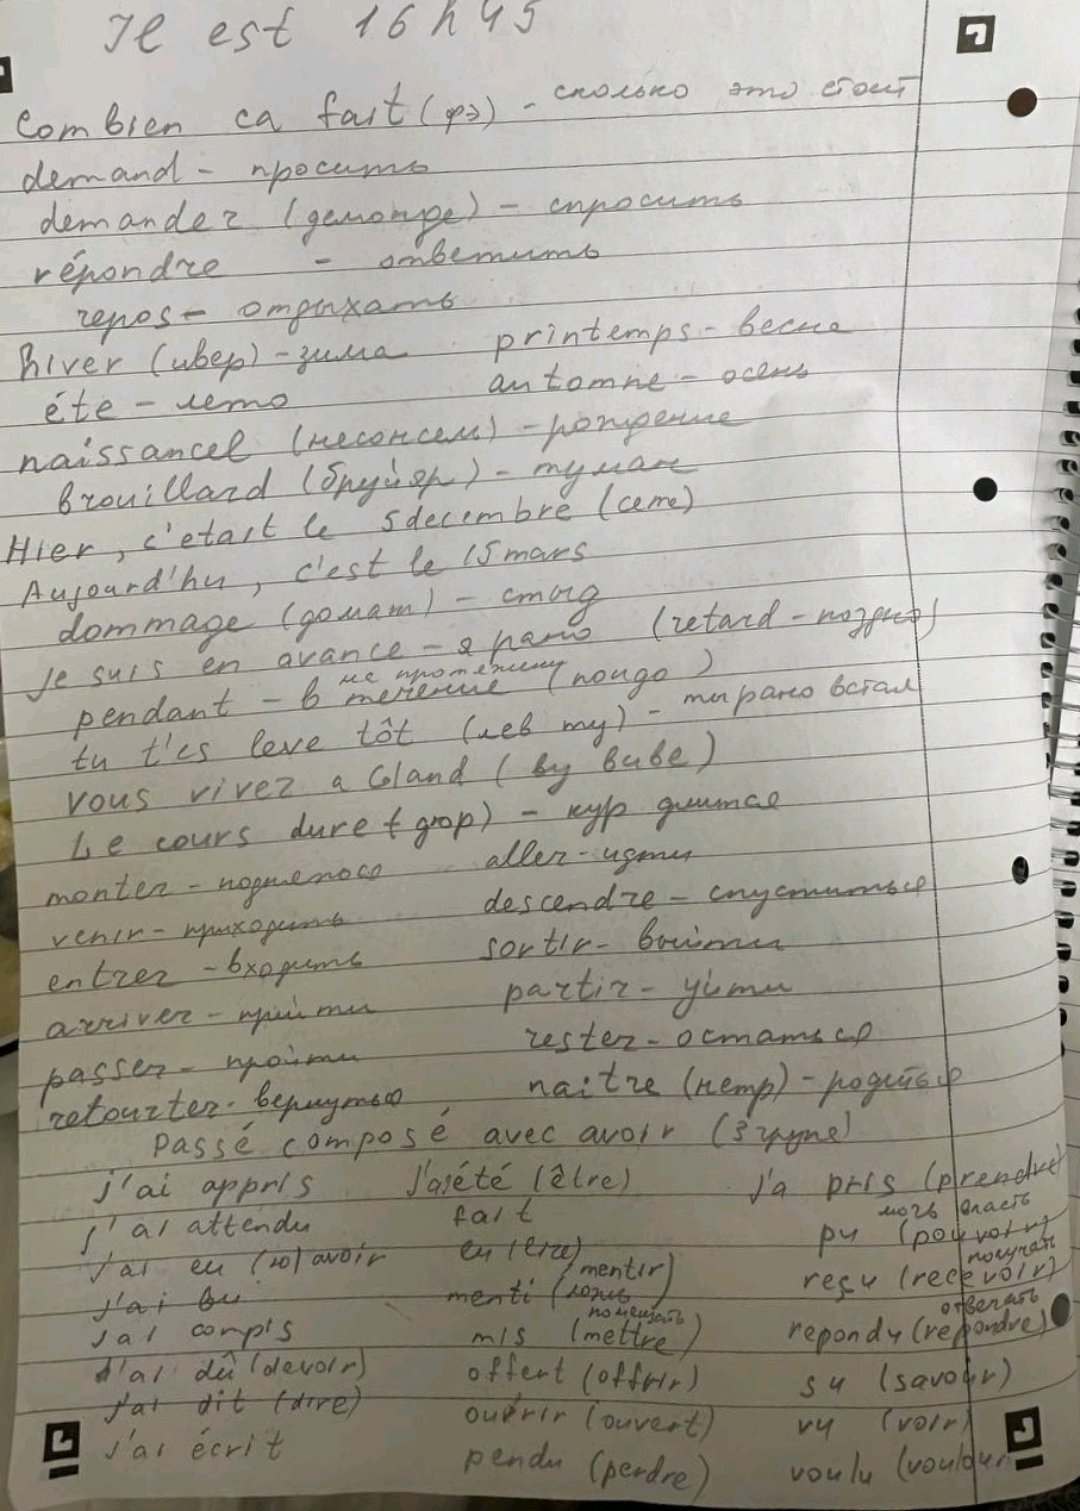 Il est 16 h 45
Combien ca fait (фэ) - сколько это стоит
demand - просить
demander (демонде) - спросить
répondre - ответить
repos - отдыхать
hiver (ивер) - зима printemps - весна
éte - лето automne - осень
naissancel (несонсел) - рождение
brouillard (бруйяр) - туман
Hier, c'etait le 5 decembre (сете)
Aujourd'hu, c'est le 15 mars
dommage (домаж) - стыд
je suis en avance - я рано (retard - поздно)
pendant - в течение (пондо)
tu t'es leve tôt (лев ту) - ты рано встал
vous vivez a Gland (ву виве)
Le cours dure (дюр) - кур длится
monter - aller - идти
venir - приходить descendre - спуститься
entrer - входить sortir - выйти
arriver - прийти partir - уйти
passer - пройти rester - остаться
retourter - вернутся naitre (нетр) - родиться
Passé composé avec avoir (3 група)
j'ai appris J'aiété (être) j'a pris (prendre)
j'ai attendu fait pu (pouvoir) мочь власть
j'ai eu (ю) avoir lu (lire) reçu (recevoir) получать
j'ai bu menti (mentir) ложь
j'ai compis mis (mettre) помещать repondu (repondre) отвечать
j'ai dû (devoir) offert (offrir) su (savoir)
j'ai dit (dire) ouvrir (ouvert) vu (voir)
j'ai écrit pendu (perdre) voulu (vouloir